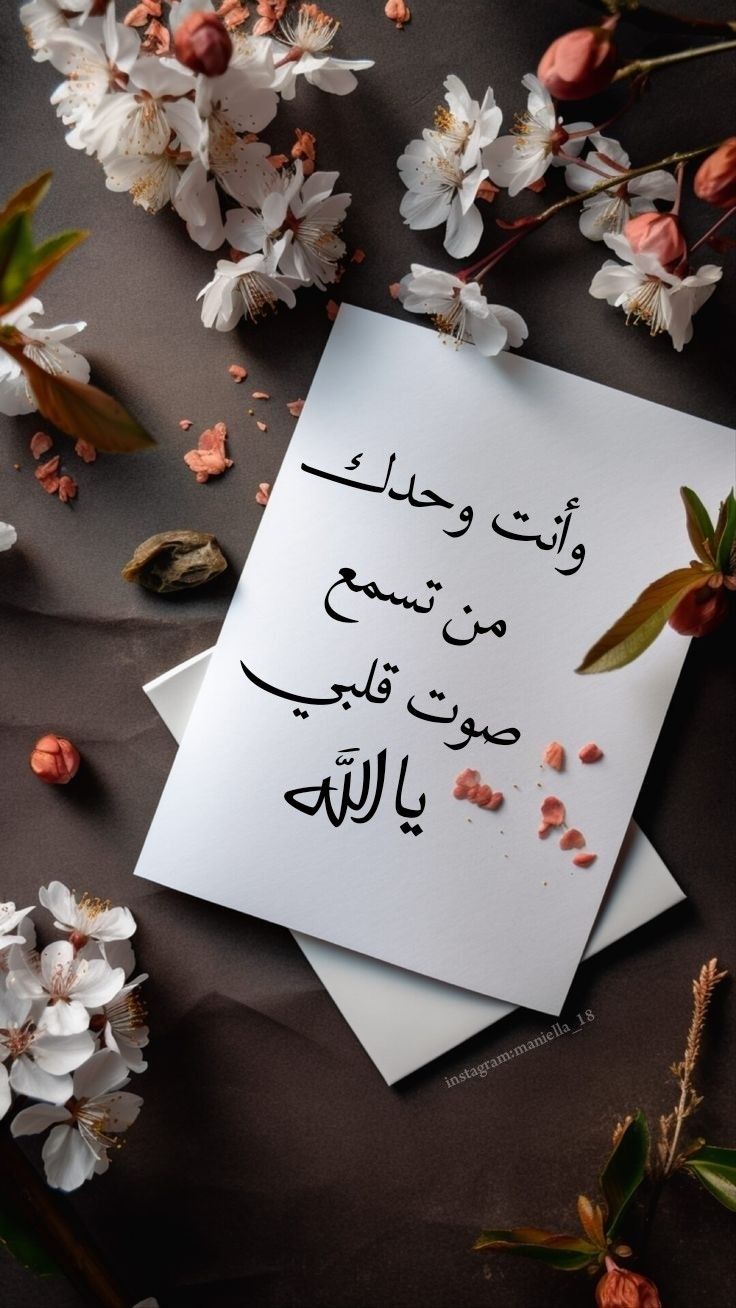 وأنت وحدك
من تسمع
صوت قلبي
يا الله
instagram:maniella_18